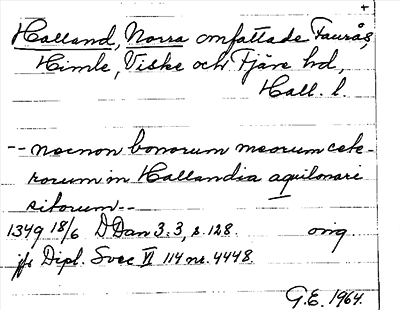 +
Halland, Norra omfattade Faurås,
Himle, Viske och Fjäre hd,
Hall. l.
-- necnon bonorum meorum cete-
rorum in Hallandia aquilonari
sitorum --
1349 18/6 DDan 3:3, s. 128. orig.
jfr Dipl. Svec VI 114 nr. 4448.
G.E. 1964.